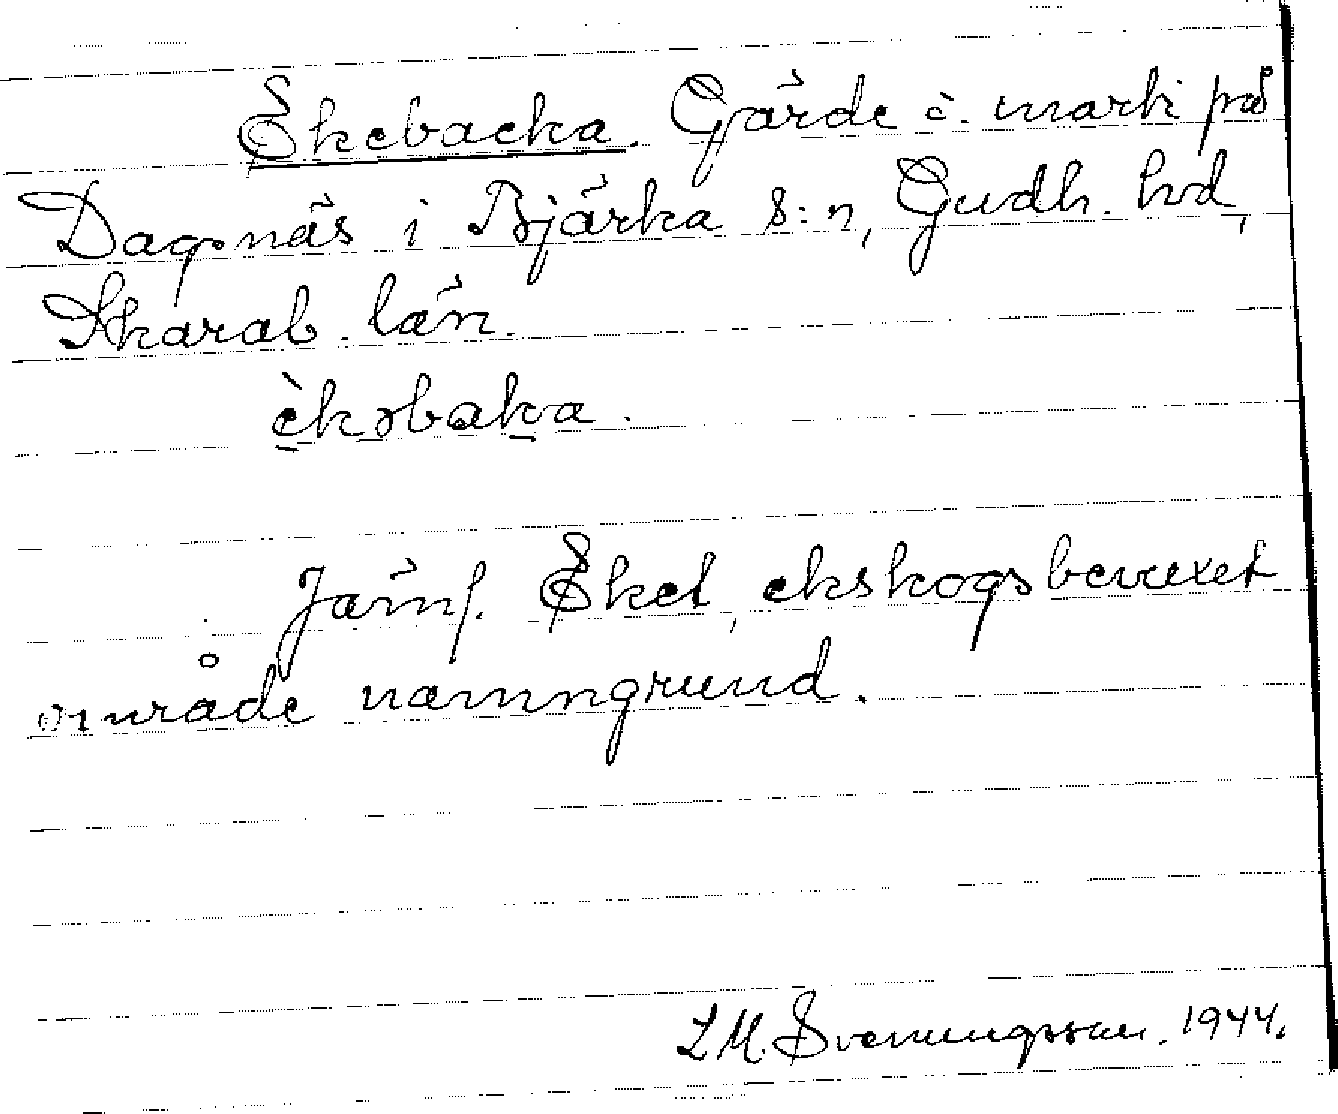 Ekebacka. Gärde o. mark på
Dagsnäs i Bjärka s:n, Gudh. hd,
Skarab. län.
èkəbaka.
Jämf. Eket, ekskogsbevuxet
område namngrund.
L M. Svenungsson. 1944.